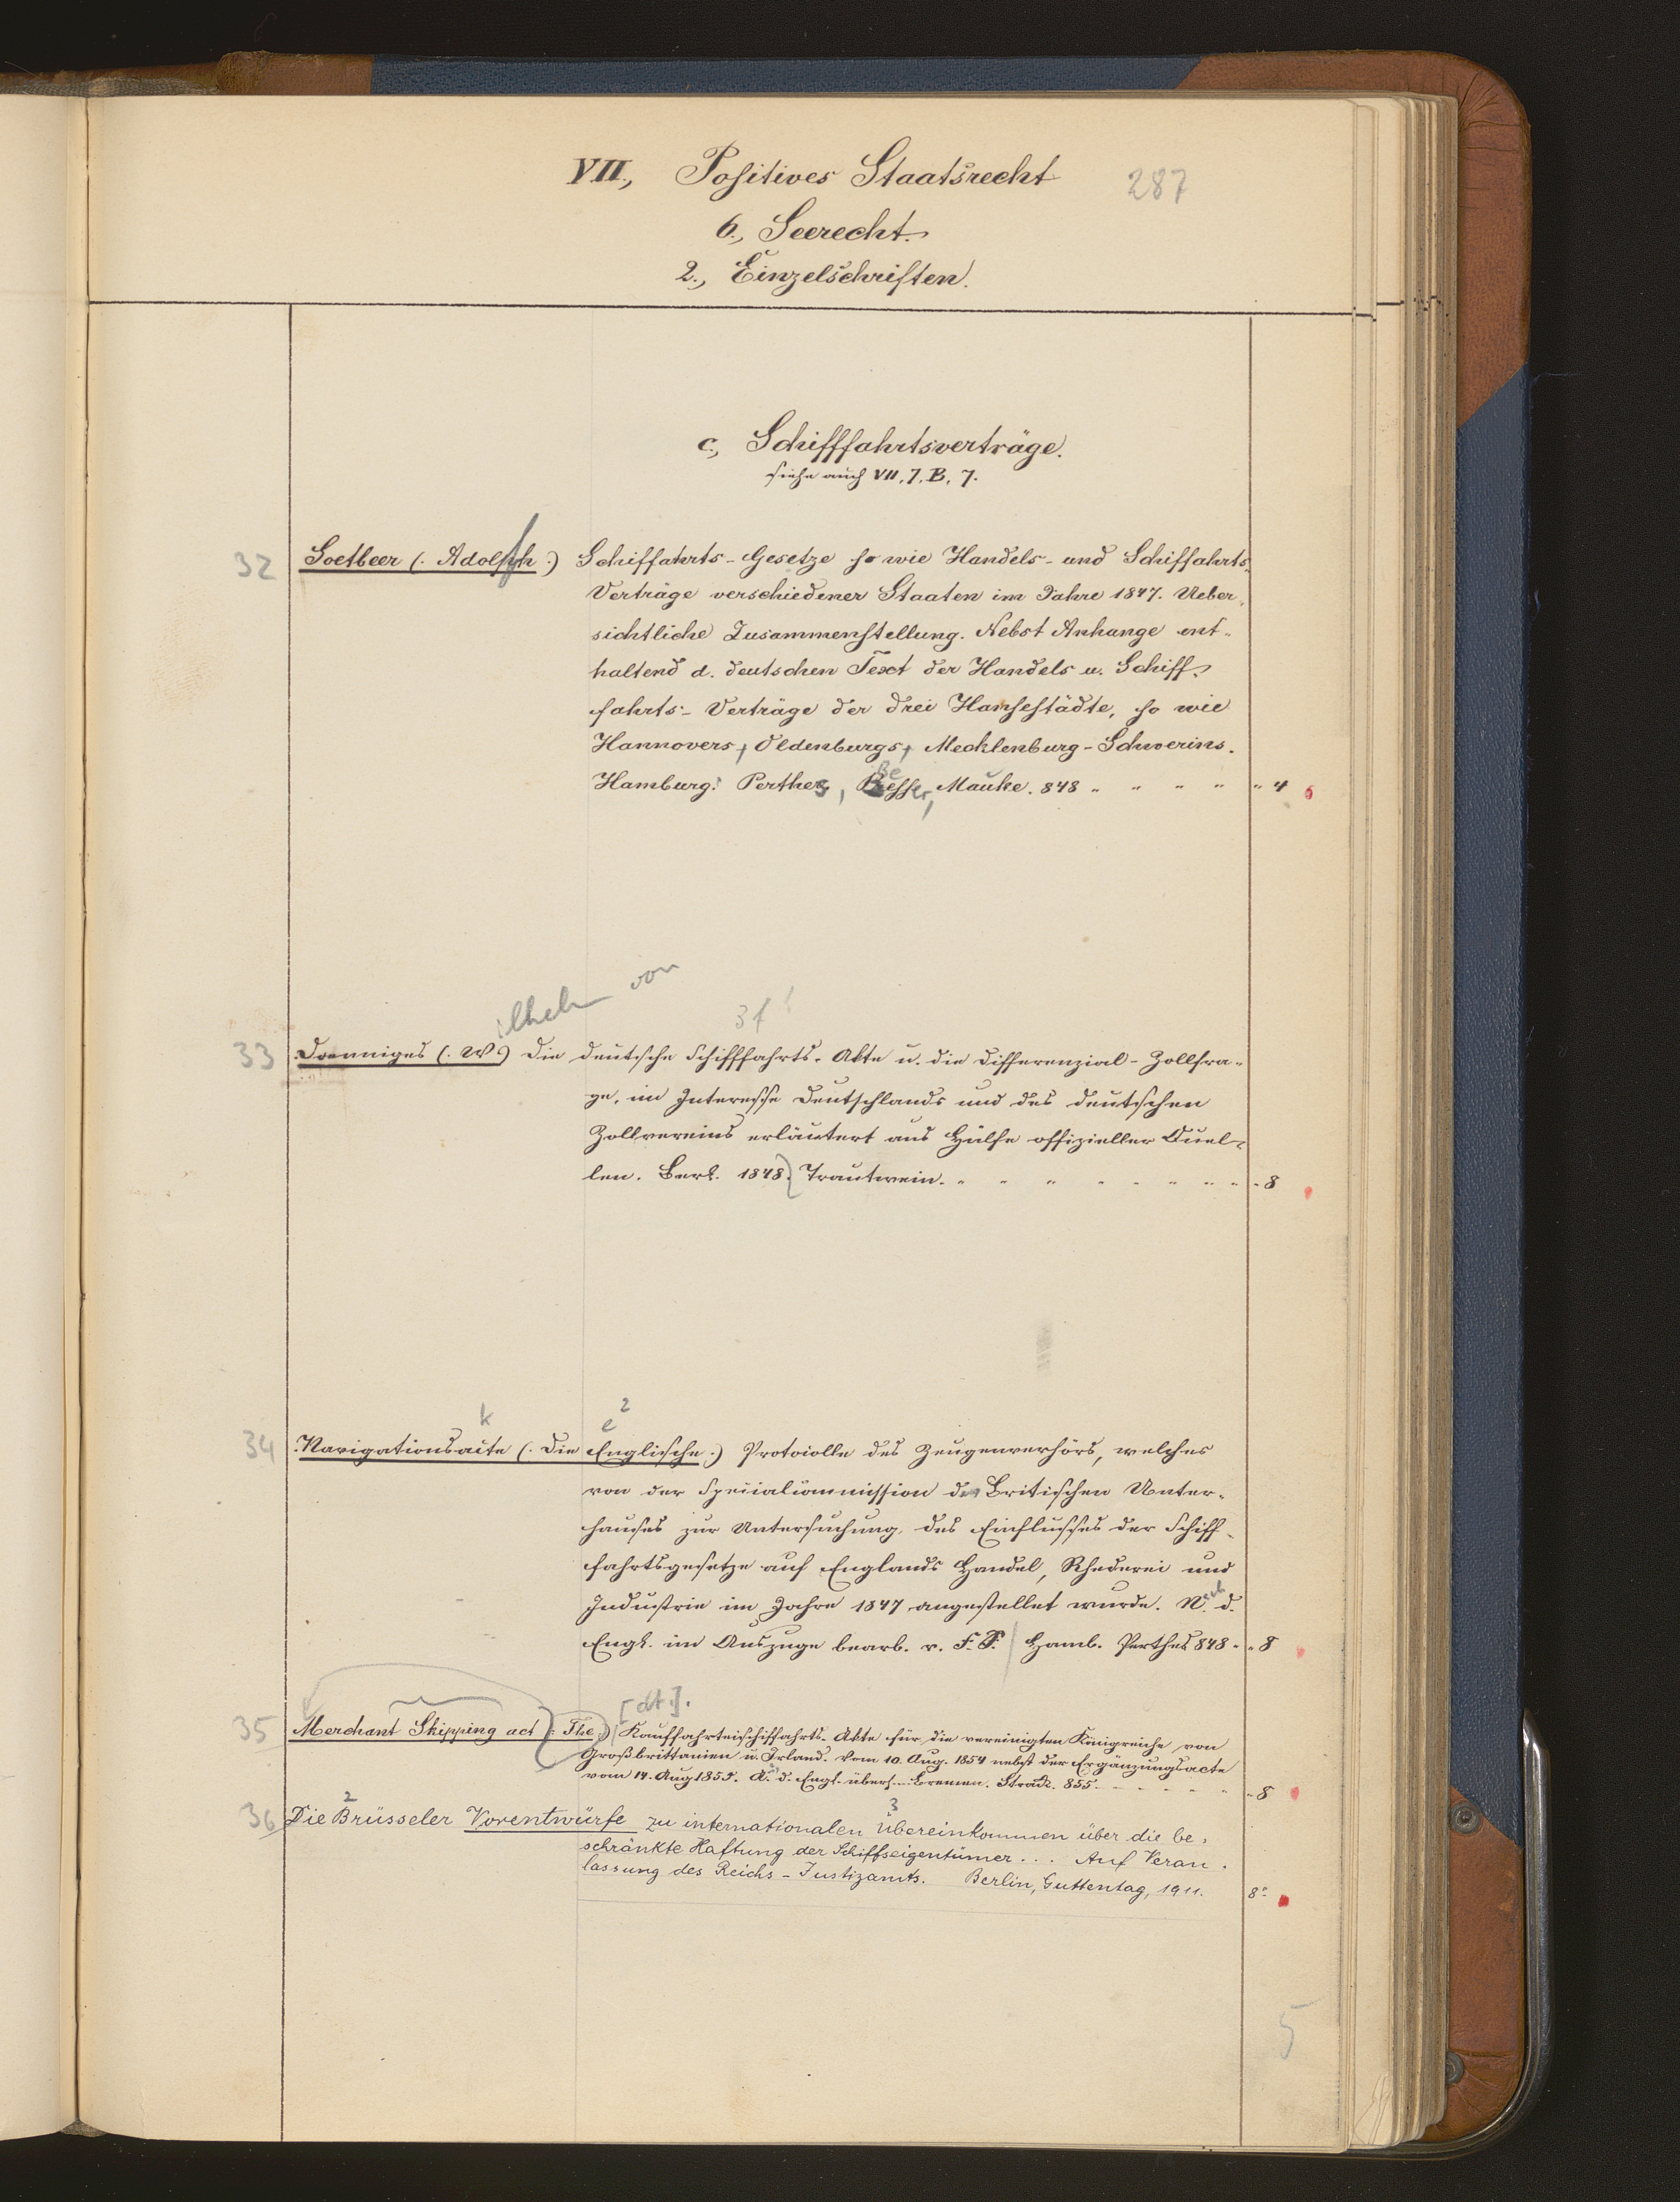 VII., Positives Staatsrecht 287
6., Seerecht.
2., Einzelschriften.
c., Schifffahrtsverträge.
siehe auch VII, 7, B, 7.
32 Soetbeer (. Adolph .) Schiffahrts-Gesetze so wie Handels- und Schiffahrts-
Verträge verschiedener Staaten im Jahre 1847. Ueber-
sichtliche Zusammenstellung. Nebst Anhange ent-
haltend d. deutschen Text der Handels u. Schiff-
fahrts-Verträge der drei Hansestädte, so wie
Hannovers, Oldenburgs, Mecklenburg-Schwerins.
Hamburg. Perthes, Besser, Mauke. 848 " " " " " 4
ilhelm von
3f
33 Doenniges (. W.) Die deutsche Schifffahrts-Akte u. die Differenzial-Zollfra-
ge, im Interesse Deutschlands und des deutschen
Zollvereins erläutert aus Hülfe offizieller Quel-
len. Berl. 1848. Trautwein. " " " " " " " " 8
k e 2
34 Navigationsacte (. Die Englische .) Protocolle des Zeugenverhörs, welches
von der Specialcommission des Britischen Unter-
hauses zur Untersuchung des Einflusses der Schiff-
fahrtsgesetze auf Englands Handel, Rhederei und
Industrie im Jahre 1847 angestellet wurde. Nach d.
Engl. im Auszuge bearb. v. F. Hamb. Perthes 848 " " 8
[dt.].
35 Merchant Shipping act (. The .) Kauffahrteischiffahrts-Akte für die vereinigten Königreiche von
Großbrittanien u. Irland. Vom 10. Aug. 1854 nebst der Ergänzungsacte
vom 14. Aug 1855. A. d. Engl. übers. Bremen. Strack. 855 - - - - " 8
2 3
36 Die Brüsseler Vorentwürfe zu internationalen Übereinkommen über die be-
schränkte Haftung der Schiffseigentümer ... Auf Veran-
lassung des Reichs-Justizamts. Berlin, Guttentag, 1911. 8°
5